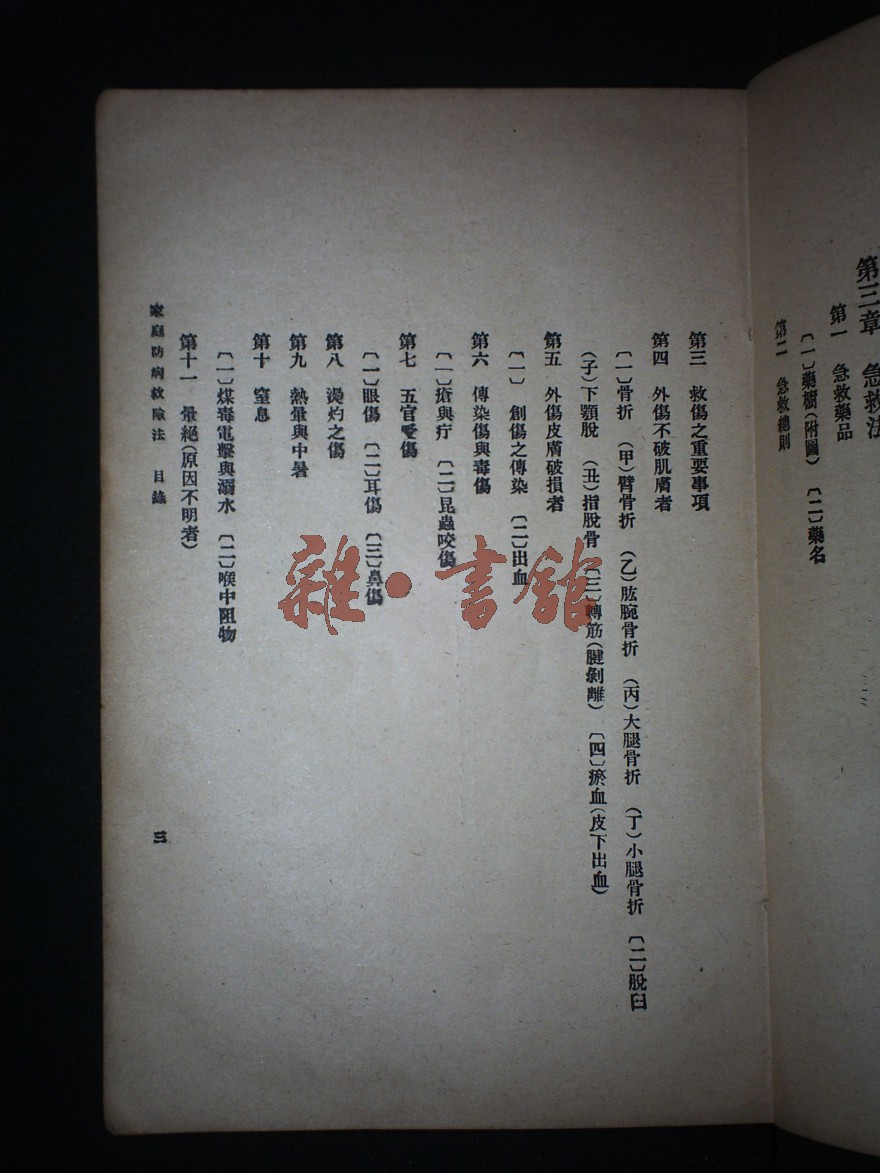 第三章　急救法
第一　急救藥品
〔一〕藥櫥(附圖)　〔二〕藥名
第二　急救總則
第三　救傷之重要事項
第四　外傷不破肌膚者
〔一〕骨折　(甲)臂骨折　(乙)肱腕骨折　(丙)大腿骨折　(丁)小腿骨折　〔二〕脫臼
(子)下顎脫　(丑)指脫骨　〔三〕轉筋(腱剝離)　〔四〕瘀血(皮下出血)
第五　外傷皮膚破損者
〔一〕創傷之傳染　〔二〕出血
第六　傳染傷與毒傷
〔一〕瘡與疔　〔二〕昆蟲咬傷
第七　五官受傷
〔一〕眼傷　〔二〕耳傷　〔三〕鼻傷
第八　燙灼之傷
第九　熱暈與中暑
第十　窒息
〔一〕煤毒電擊與溺水　〔二〕喉中阻物
第十一　暈絕(原因不明者)
家庭防病救險法　目錄
三
雜·書館